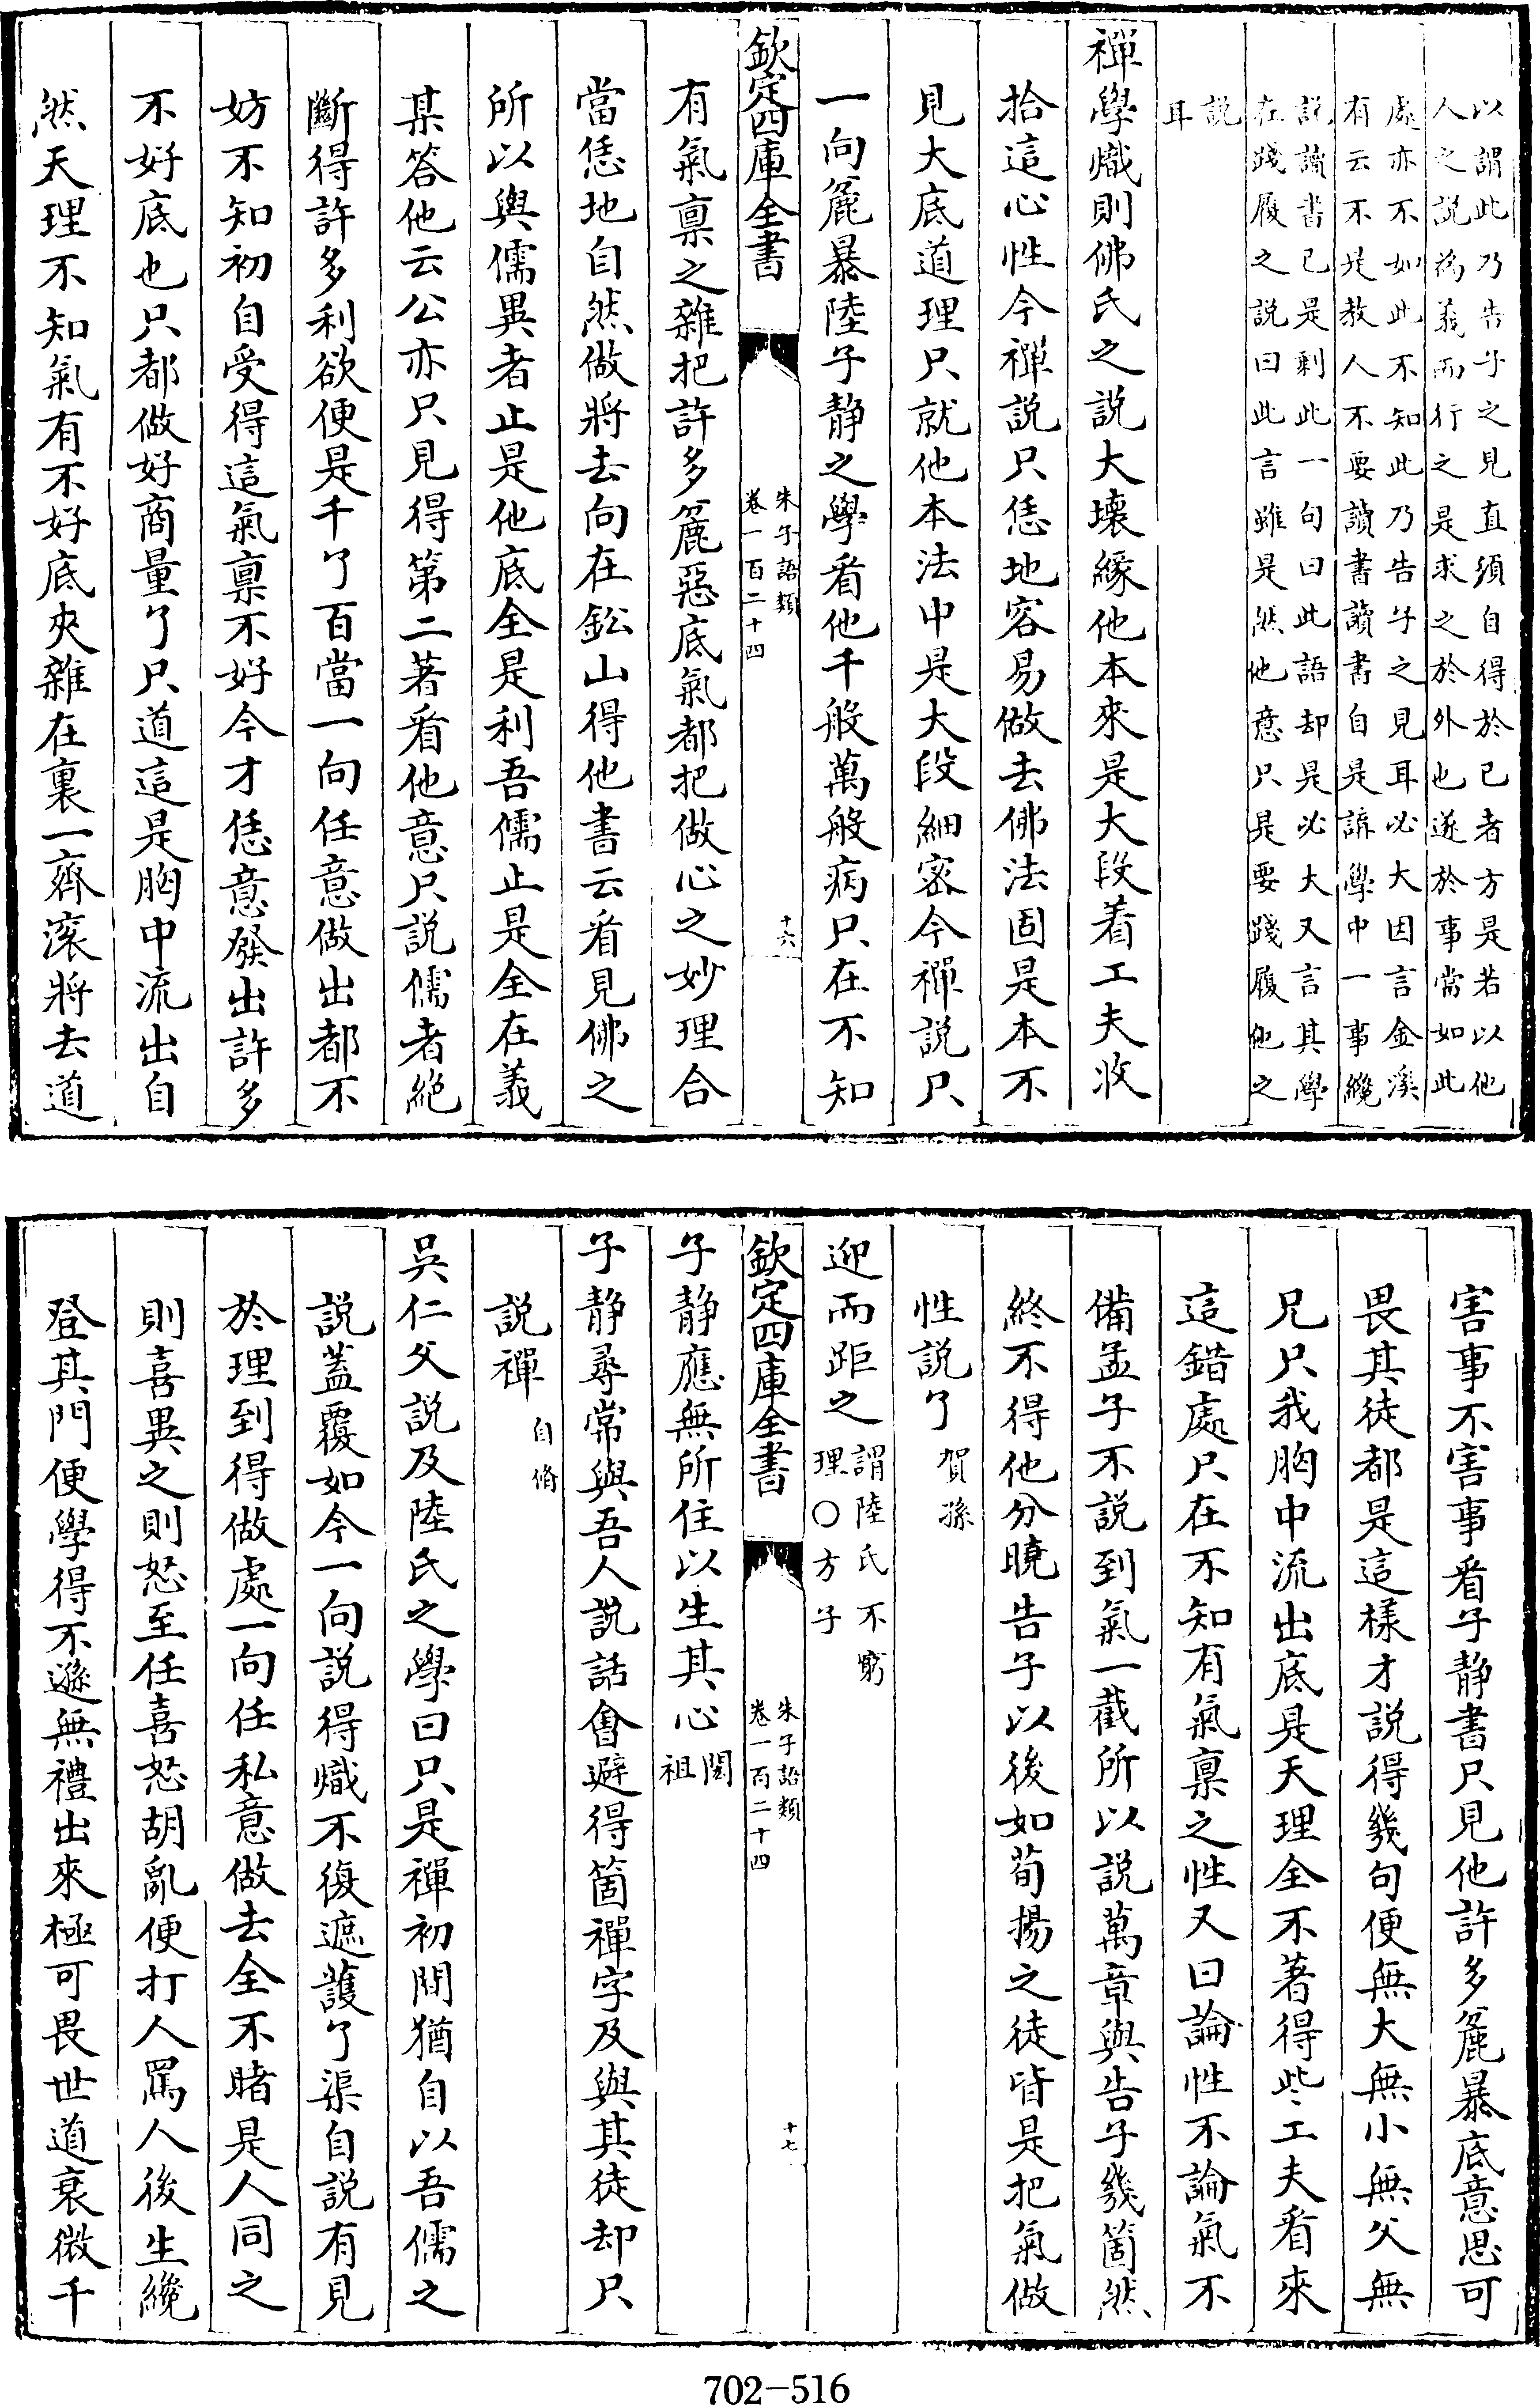 以謂此乃告子之見直須自得於已者方是若以他
人之説為義而行之是求之於外也遂於事當如此
處亦不如此不知此乃告子之見耳必大因言金溪
有云不是教人不要讀書讀書自是講學中一事纔
説讀書已是剩此一句曰此語却是必大又言其學
在踐履之説曰此言雖是然他意只是要踐履他之
説
耳
禪學熾則佛氏之説大壞緣他本來是大段着工夫收
拾這心性今禪説只恁地容易做去佛法固是本不
見大底道理只就他本法中是大段細密今禪説只
一向麄暴陸子静之學看他千般萬般病只在不知
欽定四庫全書
朱子語類
卷一百二十四
十六
有氣禀之雜把許多麄惡底氣都把做心之妙理合
當恁地自然做將去向在鈆山得他書云看見佛之
所以與儒異者止是他底全是利吾儒止是全在義
某答他云公亦只見得第二著看他意只説儒者絶
斷得許多利欲便是千了百當一向任意做出都不
妨不知初自受得這氣禀不好今才恁意發出許多
不好底也只都做好商量了只道這是胸中流出自
然天理不知氣有不好底夾雜在裏一齊滚將去道
害事不害事看子静書只見他許多麄暴底意思可
畏其徒都是這樣才説得幾句便無大無小無父無
兄只我胸中流出底是天理全不著得些工夫看來
這錯處只在不知有氣禀之性又曰論性不論氣不
備孟子不説到氣一截所以説萬章與告子幾箇然
終不得他分曉告子以後如荀揚之徒皆是把氣做
性説了 賀孫
迎而距之 謂陸氏不窮
理〇方子
欽定四庫全書
朱子語類
卷一百二十四
十七
子静應無所住以生其心 閎
祖
子静尋常與吾人説話會避得箇禪字及與其徒却只
説禪 自脩
吳仁父説及陸氏之學曰只是禪初間猶自以吾儒之
説蓋覆如今一向説得熾不復遮護了渠自説有見
於理到得做處一向任私意做去全不睹是人同之
則喜異之則怒至任喜怒胡亂便打人罵人後生纔
登其門便學得不遜無禮出來極可畏世道衰微千
702-516